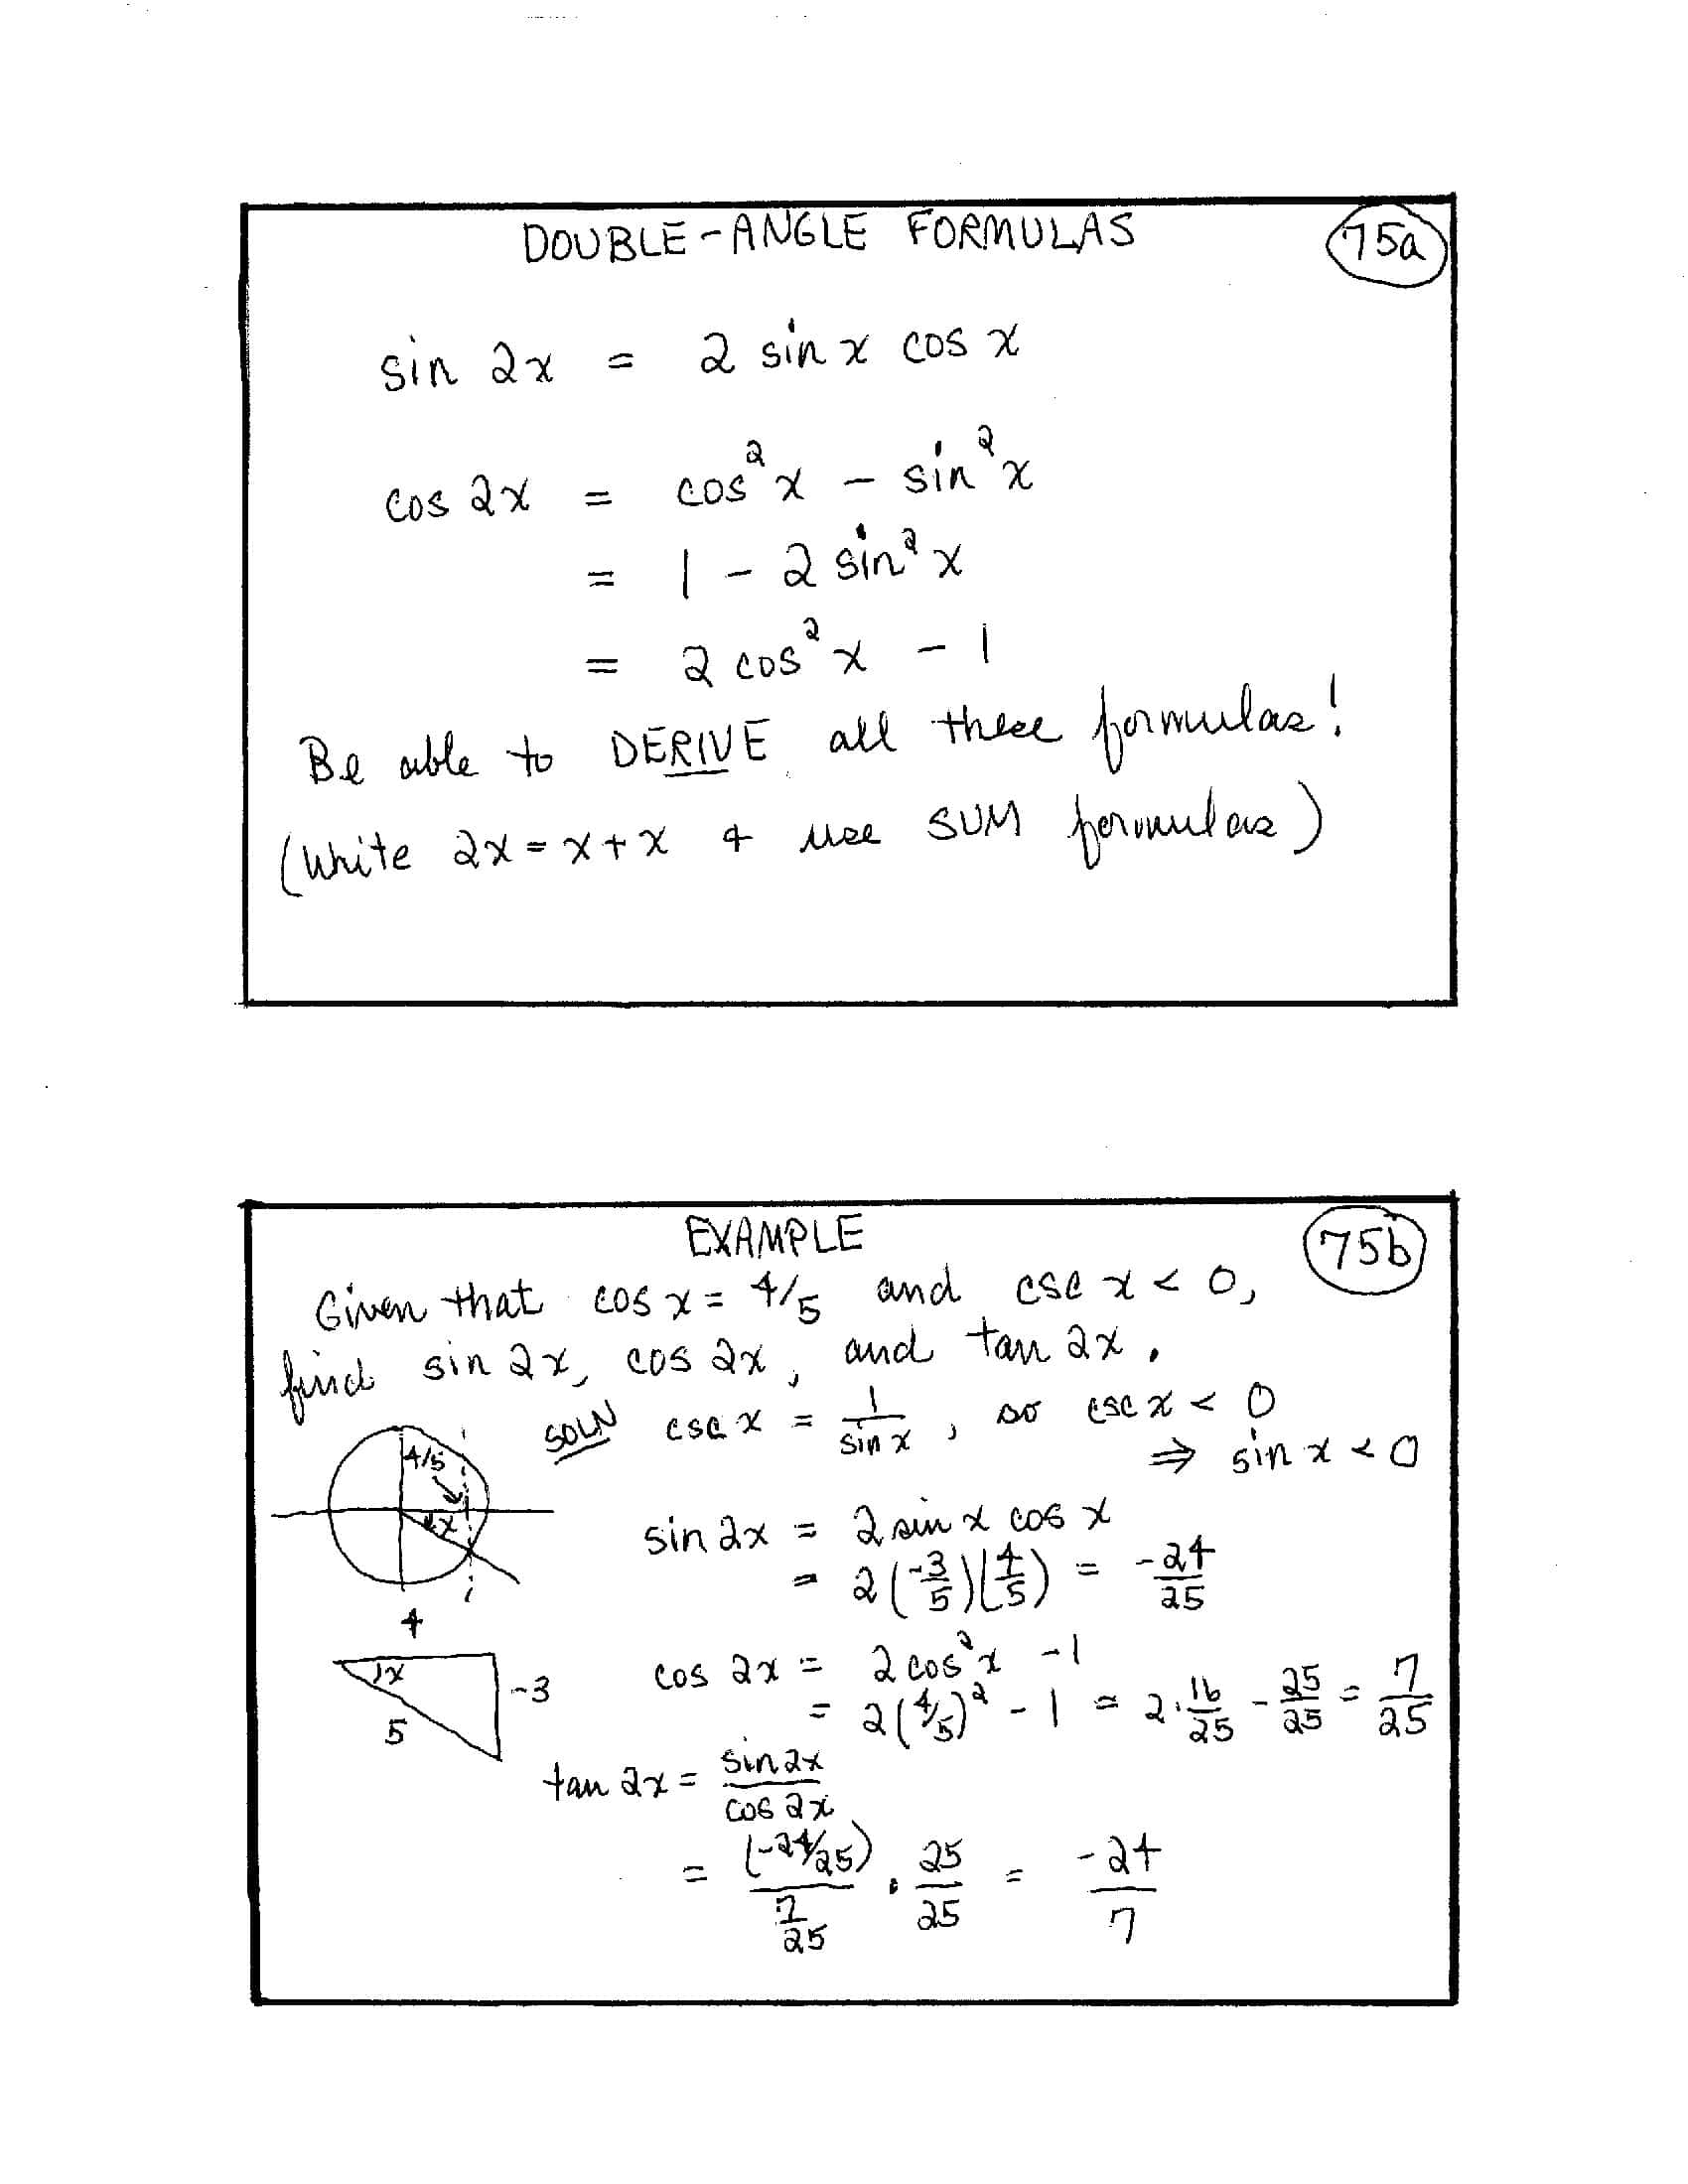 DOUBLE-ANGLE FORMULAS
75a
sin 2x = 2 sin x cos x
cos 2x = cos²x - sin²x
= 1 - 2 sin²x
= 2 cos²x - 1
Be able to DERIVE all these formulas!
(Write 2x = x + x & use SUM formulas)
EXAMPLE
75b
Given that cos x = 4/5 and csc x < 0,
find sin 2x, cos 2x, and tan 2x.
SOLN csc x = 1/sin x, so csc x < 0
⇒ sin x < 0
4/5
x
sin 2x = 2 sin x cos x
= 2(-3/5)(4/5) = -24/25
4
x
-3
5
cos 2x = 2 cos²x - 1
= 2(4/5)² - 1 = 2·16/25 - 25/25 = 7/25
tan 2x = sin 2x/cos 2x
= (-24/25)/(7/25) · 25/25 = -24/7